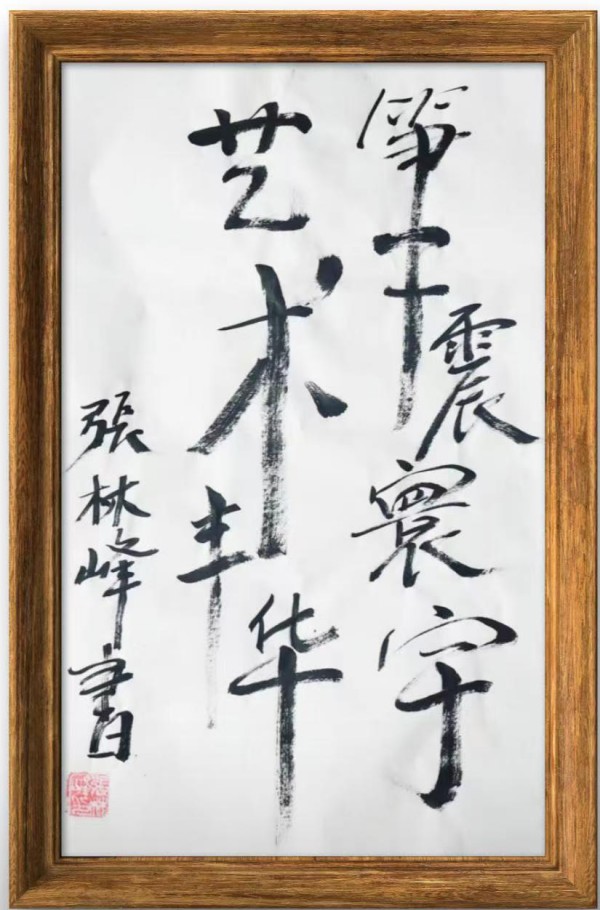 筝干震寰宇
艺术丰华
張林峰書